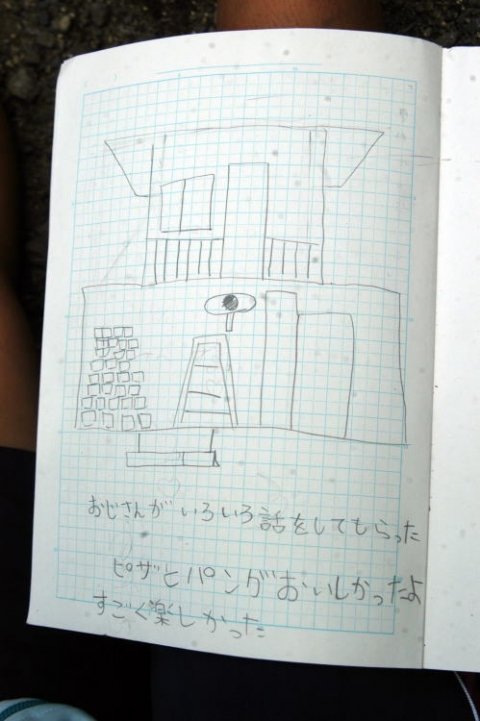 おじさんがいろいろ話をしてもらった
ピザとパンがおいしかったよ
すごく楽しかった